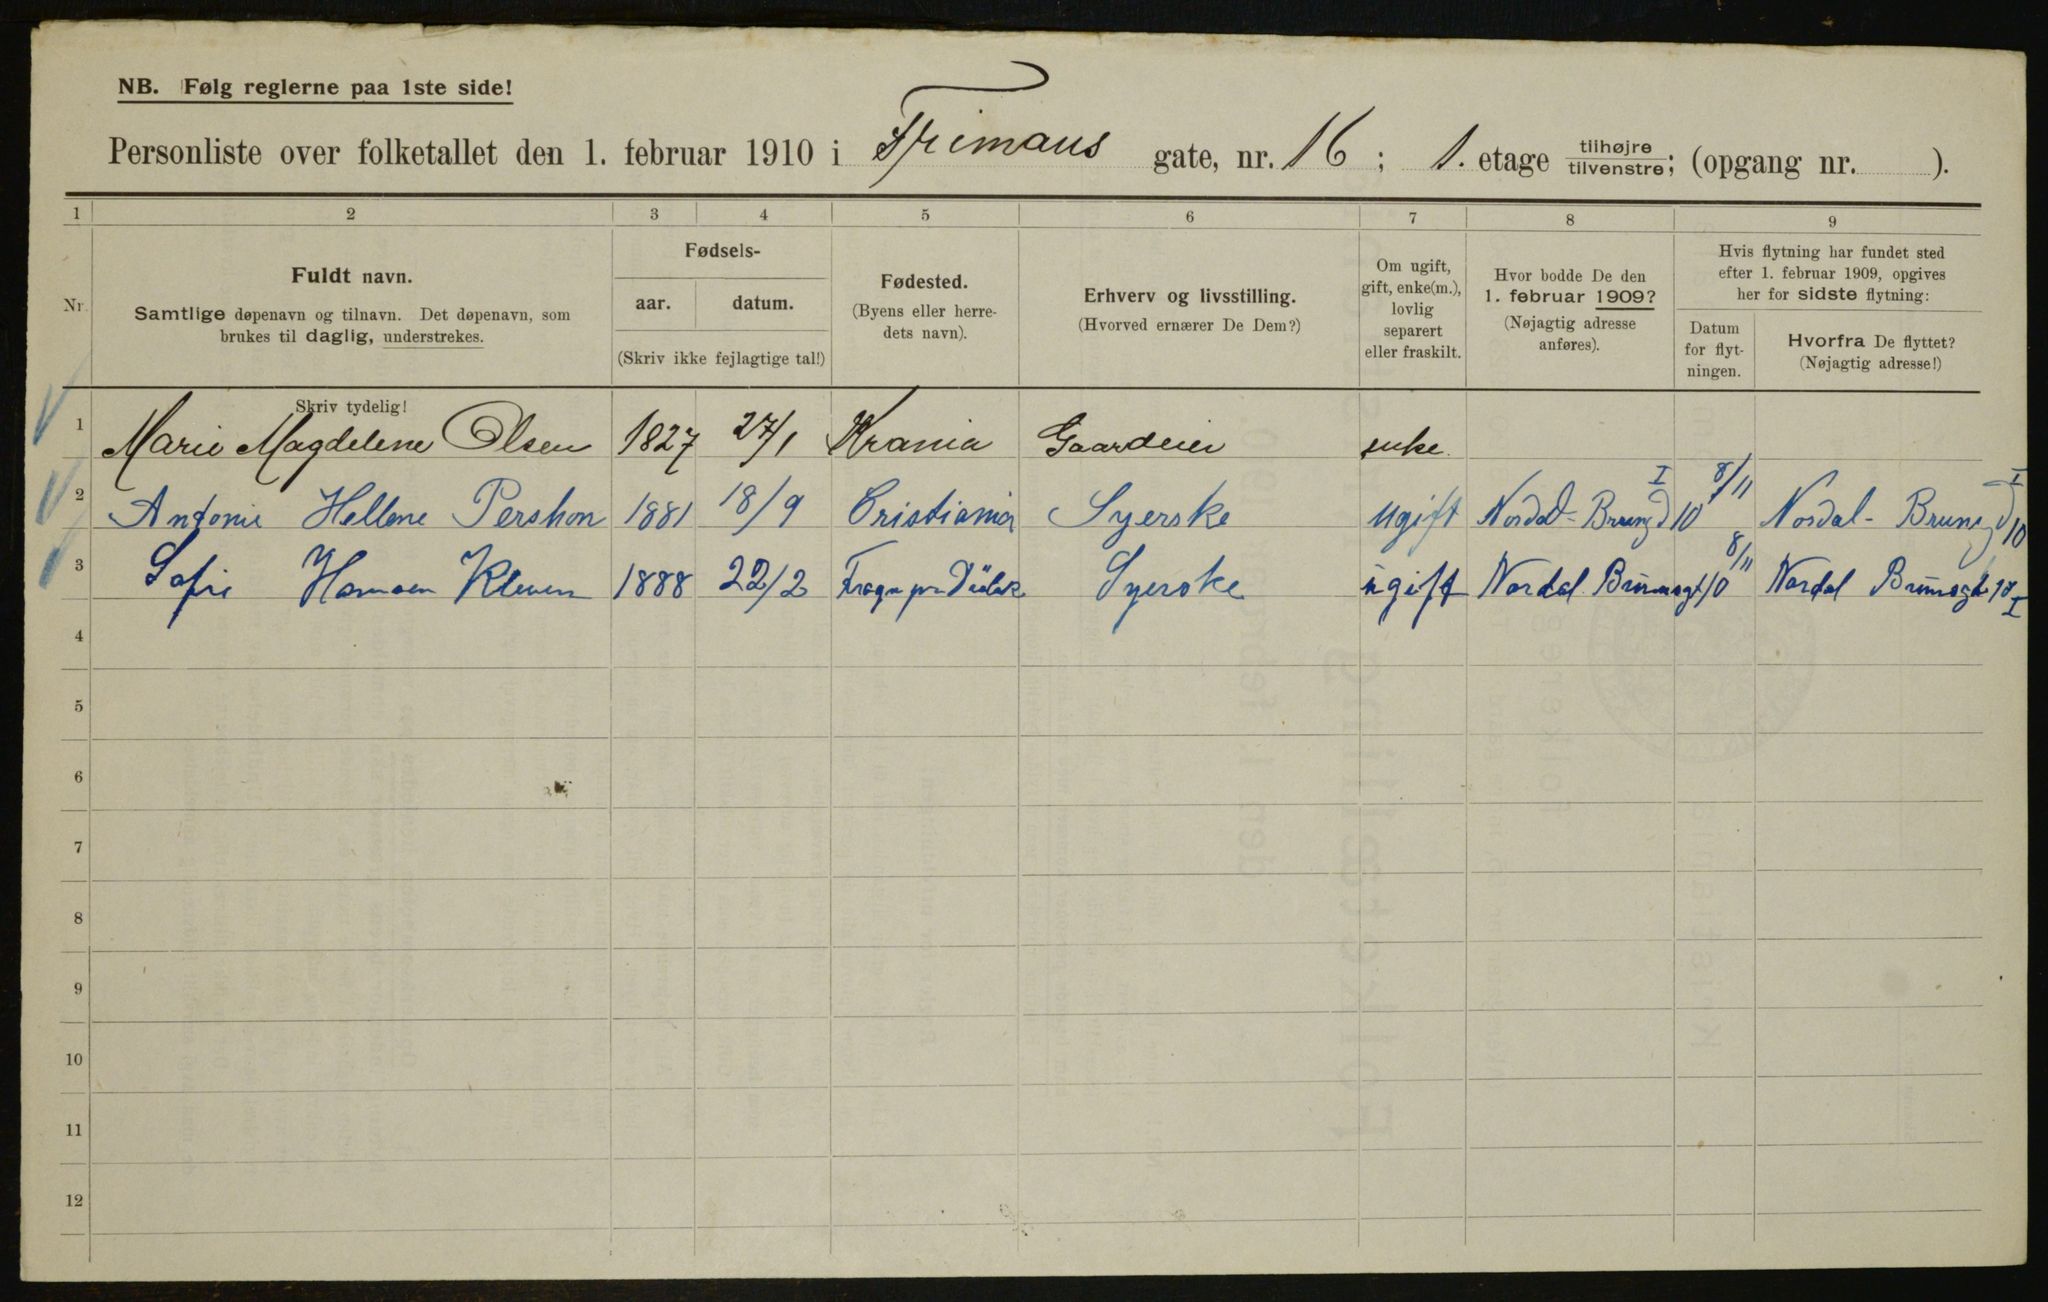 NB. Følg reglerne paa 1ste side!
Personliste over folketallet den 1. februar 1910 i Frimans gate, nr. 16; 1. etage tilhøjre tilvenstre; (opgang nr. ).
1 2 3 4 5 6 7 8 9
Nr. Fuldt navn. Samtlige døpenavn og tilnavn. Det døpenavn, som brukes til daglig, understrekes.
Fødsels-
aar. datum.
(Skriv ikke fejlagtige tal!)
Fødested. (Byens eller herredets navn).
Erhverv og livsstilling. (Hvorved ernærer De Dem?)
Om ugift, gift, enke(m.), lovlig separert eller fraskilt.
Hvor bodde De den 1. februar 1909? (Nøjagtig adresse anføres).
Hvis flytning har fundet sted efter 1. februar 1909, opgives her for sidste flytning:
Datum for flytningen.
Hvorfra De flyttet? (Nøjagtig adresse!)
Skriv tydelig!
1 Marie Magdelene Olsen 1827 27/1 Krania Gaardeier enke.
2 Antonie Hellene Pershon 1881 18/9 Cristiania Syerske ugift Nordal-Brung 10 I 8/11 Nordal-Brung 10 I
3 Sofie Hansen Kleven 1888 22/2 Syerske ugift Nordal Brunsgt 10 8/11 Nordal Brunsgt 10 I
4
5
6
7
8
9
10
11
12